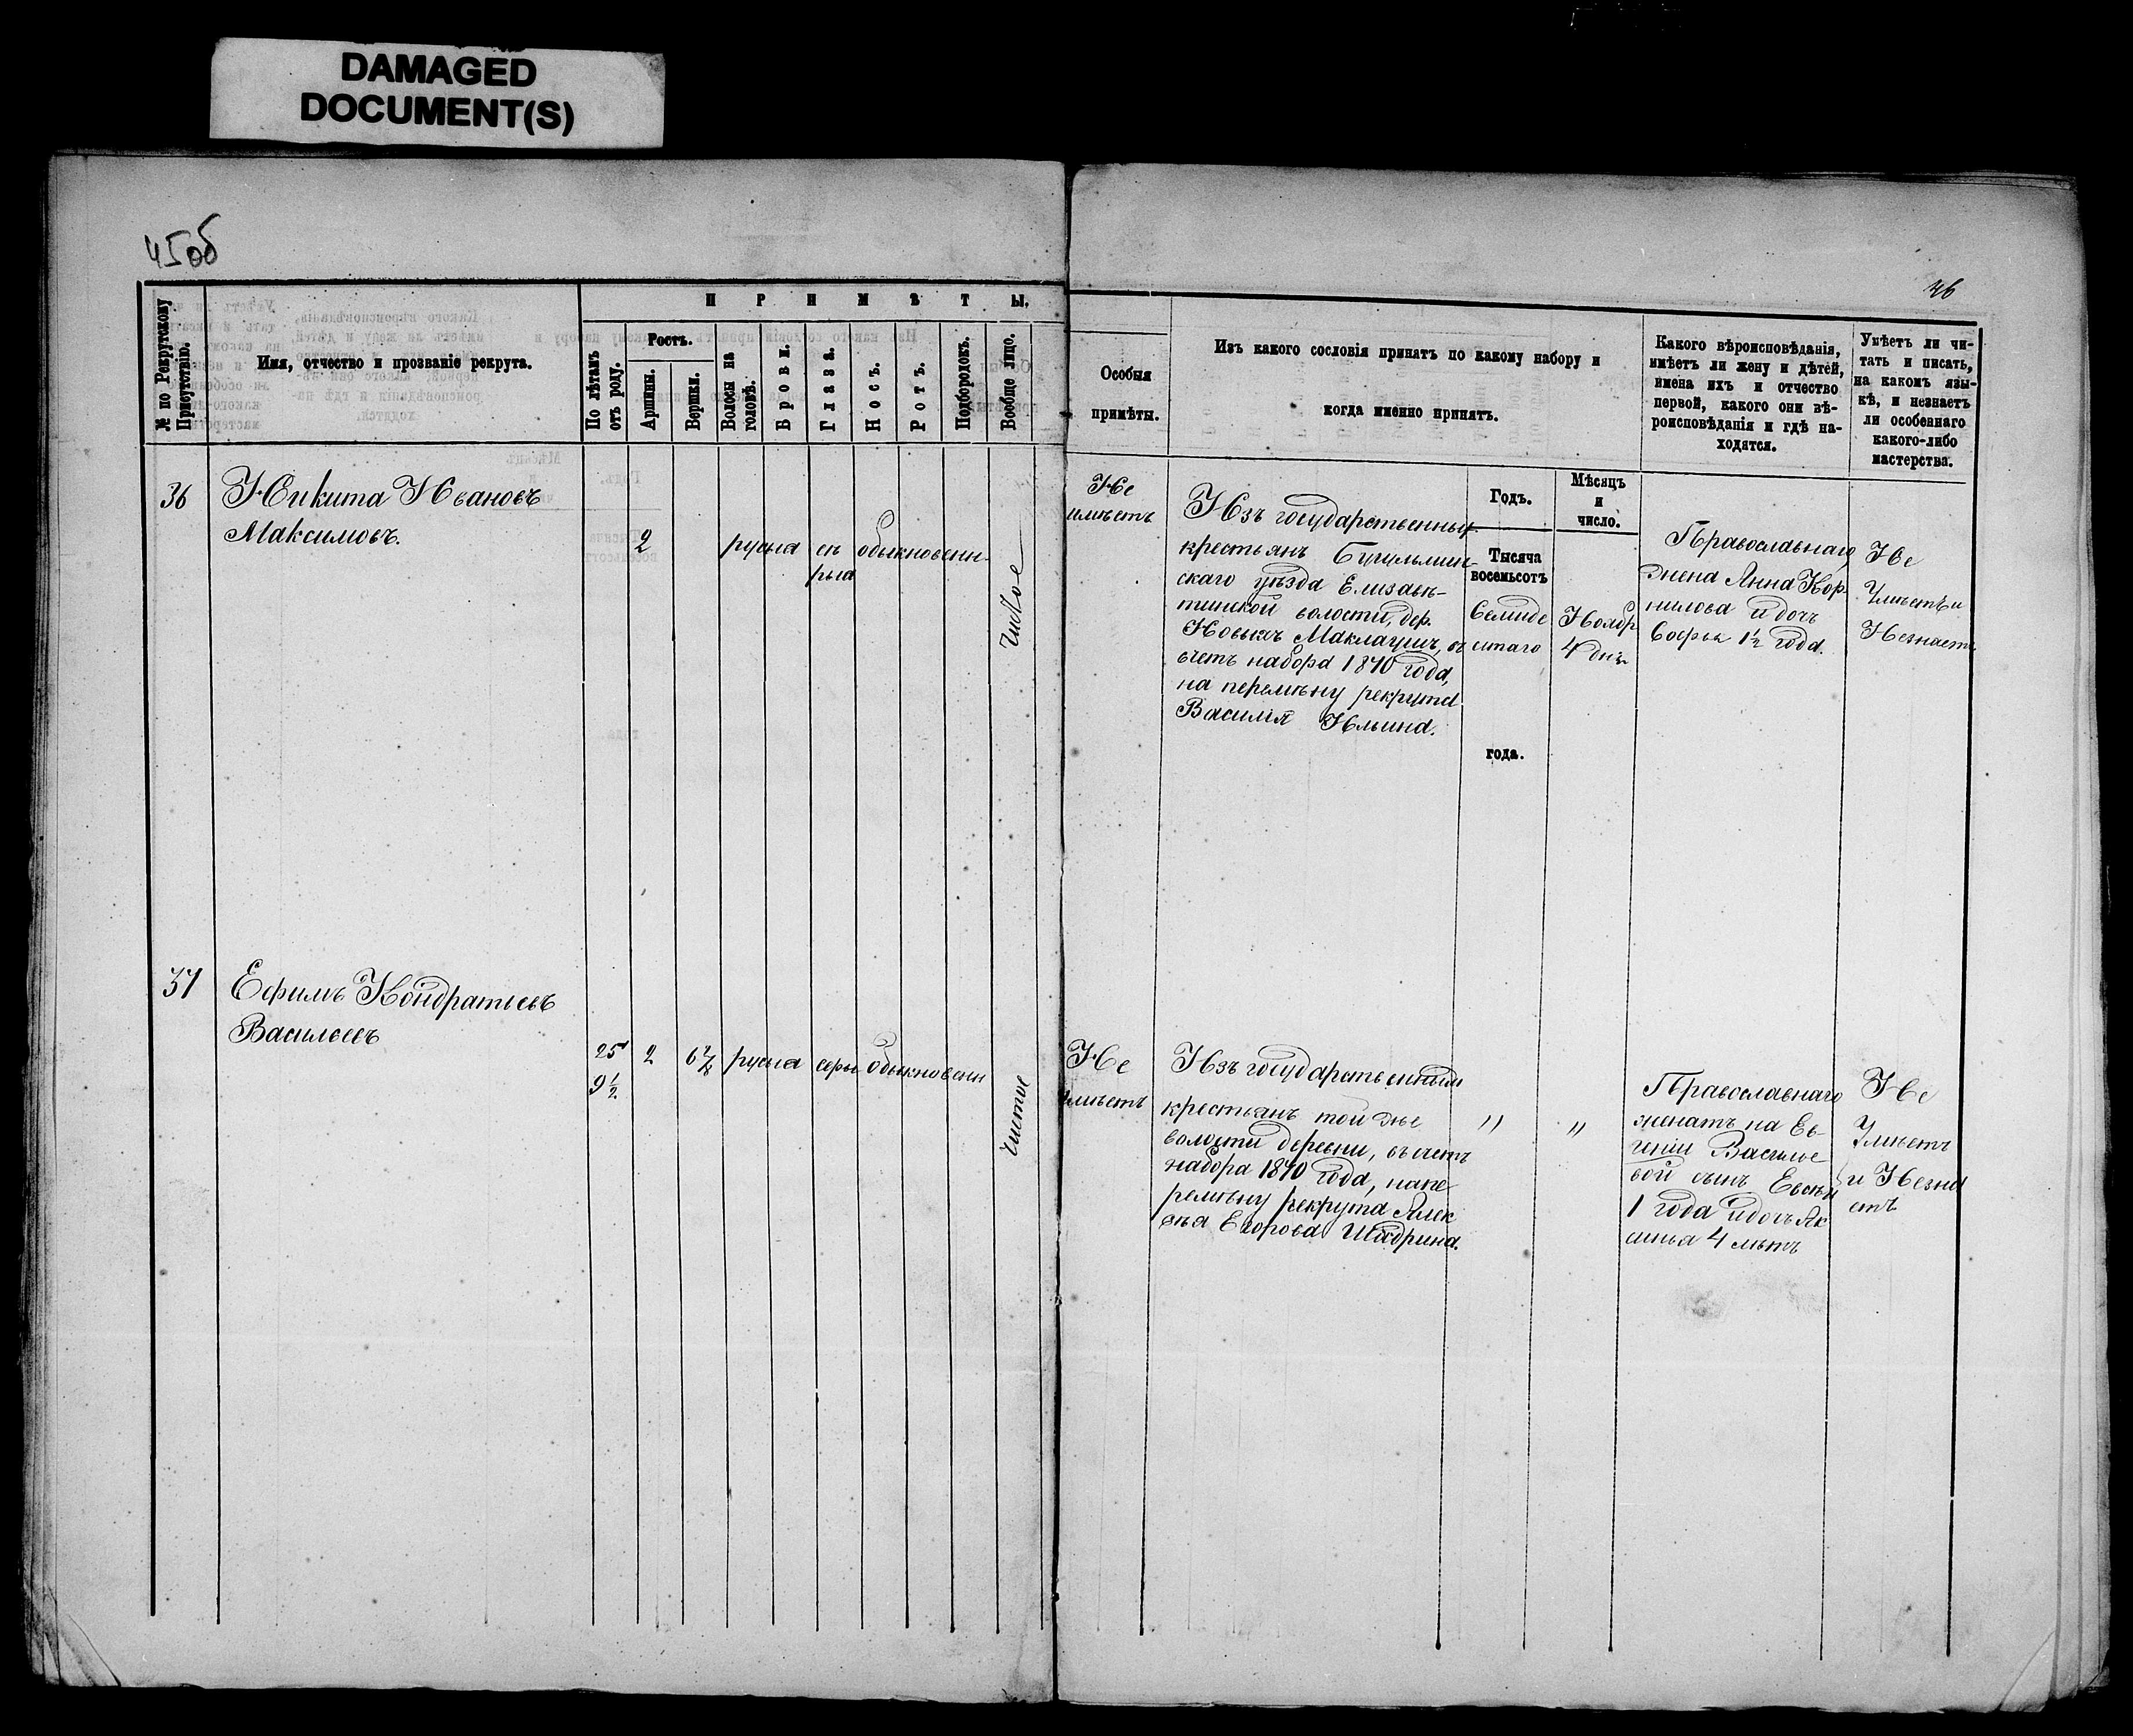 DAMAGED
DOCUMENT(S)
45об
46
№ по Рекрутскому Присутствію.
Имя, отчество и прозваніе рекрута.
ПРИМѢТЫ.
По лѣтамъ отъ роду.
Ростъ.
Аршины.
Вершки.
Волосы на головѣ.
Брови.
Глаза.
Носъ.
Ротъ.
Подбородокъ.
Вообще лицо.
Особыя
примѣты.
Изъ какого сословія принятъ по какому набору и
когда именно принятъ.
Какого вѣроисповѣданія,
имѣетъ ли жену и дѣтей,
имена ихъ и отчество
первой, какого они вѣ-
роисповѣданія и гдѣ на-
ходятся.
Умѣетъ ли чи-
тать и писать,
на какомъ язы-
кѣ, и незнаетъ
ли особеннаго
какого-либо
мастерства.
36
Никита Ивановъ
Максимовъ.
2
русыя
сѣ
рыя
обыкновенн-
чистое
Не
имѣетъ
Изъ государственных
крестьянъ Бугульмин-
скаго уѣзда Елизаве-
тинской волости, дер.
Новыхъ Маклаушъ, въ
счетъ набора 1870 года,
на перемѣну рекрута
Василія Ильина.
Годъ.
Тысяча
восемьсотъ
Семиде
сятаго
года.
Мѣсяцъ
и
число.
Ноябр
4 дня
Православнаго
жена Анна Кор
нилова и дочь
Софья 1½ года.
Не
Умѣетъ и
Незнаетъ
37
Ефимъ Кондратьевъ
Васильевъ
25
9½
2
6⅞
русыя
серы
обыкновенн
чистое
Не
имѣетъ
Изъ государственных
крестьянъ той же
волости деревни, въ счетъ
набора 1870 года, напе
ремѣну рекрута Алек
сѣя Егорова Шадрина.
"
"
Православнаго
женатъ на Ев-
геніи Василье
вой сынъ Евсѣй
1 года и дочь Ак
синья 4 лѣтъ
Не
Умѣетъ
и Незна
етъ